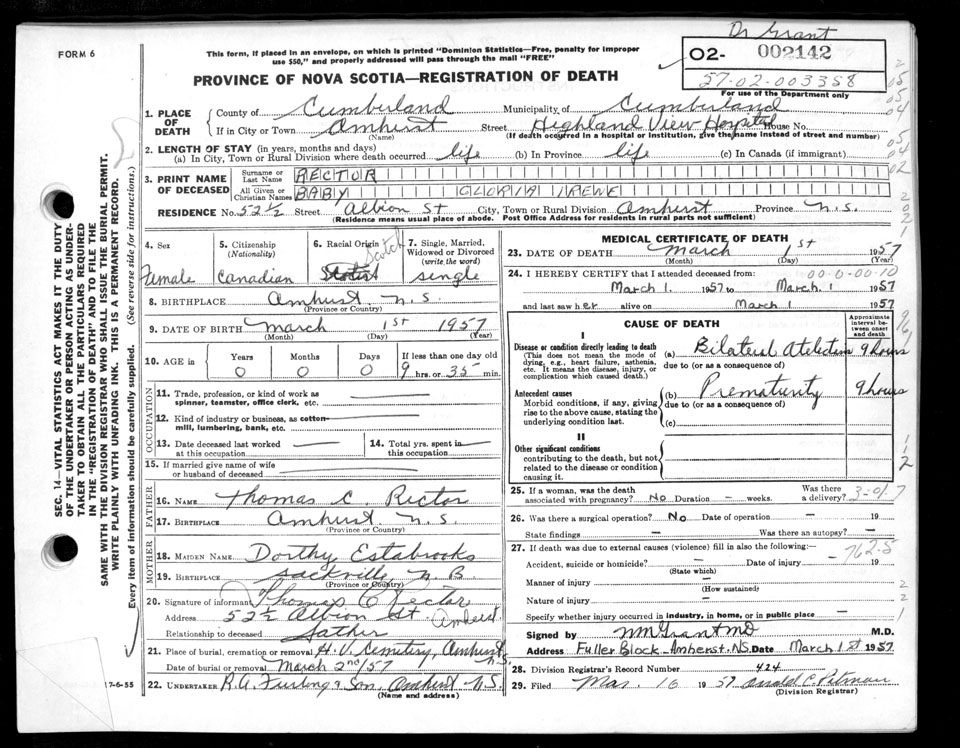 Dr Grant
FORM 6
This form, if placed in an envelope, on which is printed "Dominion Statistics—Free, penalty for improper
use $50," and properly addressed will pass through the mail "FREE"
02- 002142
57-02-003358
For use of the Department only
PROVINCE OF NOVA SCOTIA—REGISTRATION OF DEATH
SEC. 14—VITAL STATISTICS ACT MAKES IT THE DUTY
OF THE UNDERTAKER OR PERSON ACTING AS UNDER-
TAKER TO OBTAIN ALL THE PARTICULARS REQUIRED
IN THE "REGISTRATION OF DEATH" AND TO FILE THE
SAME WITH THE DIVISION REGISTRAR WHO SHALL ISSUE THE BURIAL PERMIT.
WRITE PLAINLY WITH UNFADING INK. THIS IS A PERMANENT RECORD.
Every item of information should be carefully supplied. (See reverse side for instructions.)
1. PLACE OF DEATH
County of Cumberland Municipality of Cumberland
If in City or Town Amhurst Street Highland View Hospital House No.
(Name) (If death occurred in a hospital or institution, give the name instead of street and number)
2. LENGTH OF STAY (in years, months and days)
(a) In City, Town or Rural Division where death occurred life (b) In Province life (c) In Canada (if immigrant)
3. PRINT NAME OF DECEASED
Surname or Last Name RECTOR
All Given or Christian Names BABY GLORIA IRENE
RESIDENCE No. 52½ Street Albion St City, Town or Rural Division Amhurst Province N.S.
(Residence means usual place of abode. Post Office Address for residents in rural parts not sufficient)
4. Sex Female
5. Citizenship (Nationality) Canadian
6. Racial Origin Scotch
7. Single, Married, Widowed or Divorced (write the word) single
8. BIRTHPLACE Amhurst N.S.
(Province or Country)
9. DATE OF BIRTH March 1st 1957
(Month) (Day) (Year)
10. AGE in Years 0 Months 0 Days 0 If less than one day old 9 hrs. or 35 min.
OCCUPATION
11. Trade, profession, or kind of work as
spinner, teamster, office clerk, etc.
12. Kind of industry or business, as cotton-
mill, lumbering, bank, etc.
13. Date deceased last worked at this occupation
14. Total yrs. spent in this occupation
15. If married give name of wife
or husband of deceased
FATHER
16. NAME Thomas C Rector
17. BIRTHPLACE Amhurst N.S.
(Province or Country)
MOTHER
18. MAIDEN NAME Dorthy Estabrooks
19. BIRTHPLACE Sackville N.B.
(Province or Country)
20. Signature of informant Thomas C Rector
Address 52½ Albion St Amherst
Relationship to deceased father
21. Place of burial, cremation or removal H.V. Cemetery, Amhurst N.S.
Date of burial or removal March 2nd/57
22. UNDERTAKER R.A. Furlong & Son, Amhurst N.S.
(Name and address)
7-6-55
MEDICAL CERTIFICATE OF DEATH
23. DATE OF DEATH March 1st 1957
(Month) (Day) (Year)
24. I HEREBY CERTIFY that I attended deceased from: 00-0-00-10
March 1. 1957 to March. 1 1957
and last saw her alive on March 1 1957
CAUSE OF DEATH
Approximate interval between onset and death
I
Disease or condition directly leading to death
(This does not mean the mode of
dying, e.g., heart failure, asthenia,
etc. It means the disease, injury, or
complication which caused death.)
(a) Bilateral Atelectasis 9 hours
due to (or as a consequence of)
Antecedent causes
Morbid conditions, if any, giving
rise to the above cause, stating the
underlying condition last.
(b) Prematurity 9 hours
due to (or as a consequence of)
(c)
II
Other significant conditions
contributing to the death, but not
related to the disease or condition
causing it.
25. If a woman, was the death
associated with pregnancy? No Duration – weeks. Was there a delivery? 3-01.7
26. Was there a surgical operation? No Date of operation – 19
State findings – Was there an autopsy? –
27. If death was due to external causes (violence) fill in also the following:— 762.5
Accident, suicide or homicide? – Date of injury 19
(State which)
Manner of injury –
(How sustained)
Nature of injury –
Specify whether injury occurred in industry, in home, or in public place –
Signed by NM Grant MD M.D.
Address Fuller Block - Amherst. NS. Date March 1st 1957
28. Division Registrar's Record Number 424
29. Filed Mar. 16 1957 Donald C. Pitman
(Division Registrar)